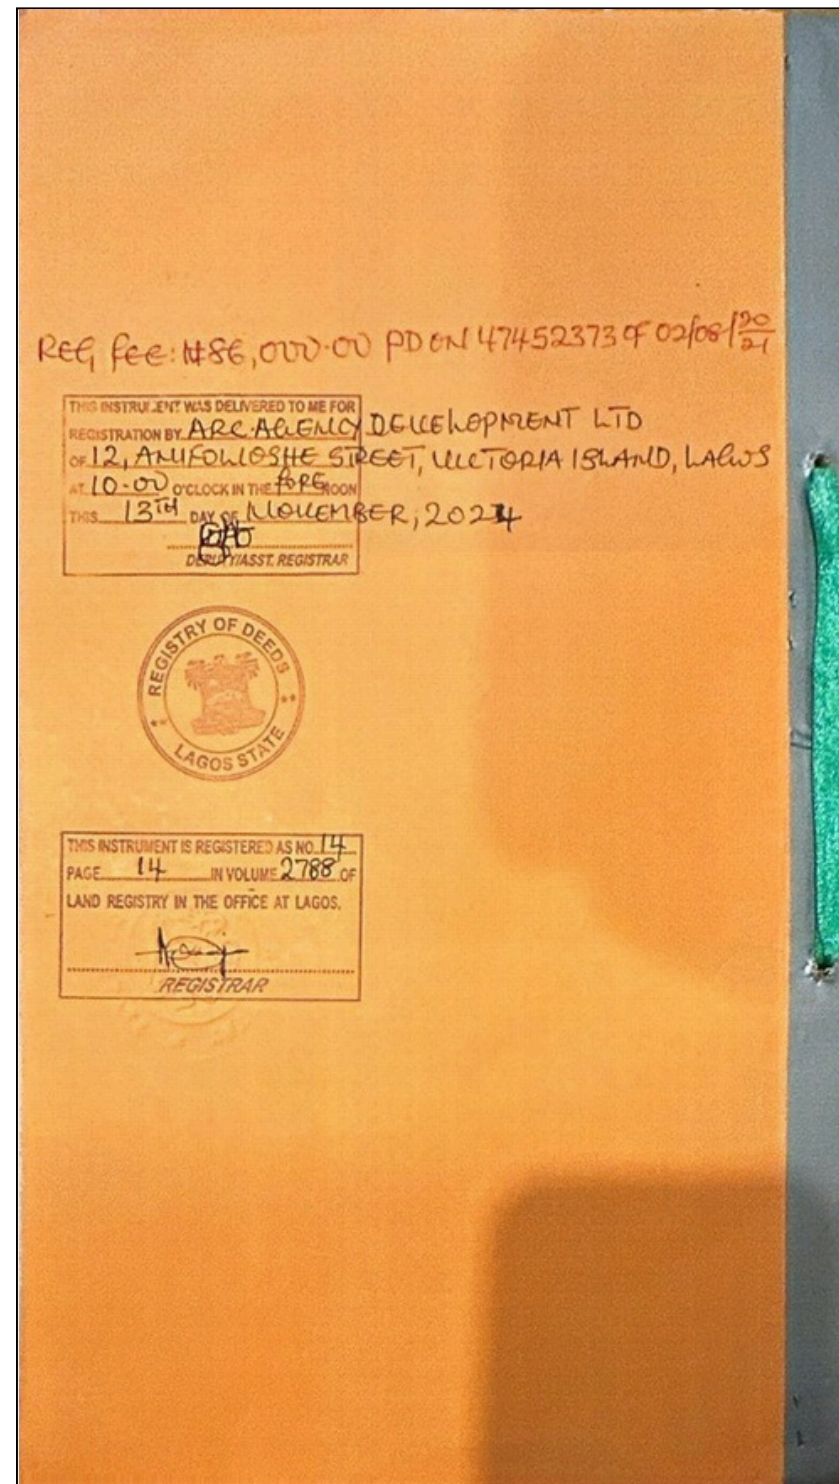 REG FEE: ₦86,000.00 PD ON 47452373 OF 02/08/2021
THIS INSTRUMENT WAS DELIVERED TO ME FOR
REGISTRATION BY ARC. AGENCY DEVELOPMENT LTD
OF 12, ANIFOWOSHE STREET, VICTORIA ISLAND, LAGOS
AT 10-00 O'CLOCK IN THE FORE NOON
THIS 13TH DAY OF NOVEMBER, 2024
DEPUTY/ASST. REGISTRAR
REGISTRY OF DEEDS
LAGOS STATE
THIS INSTRUMENT IS REGISTERED AS NO. 14
PAGE 14 IN VOLUME 2788 OF
LAND REGISTRY IN THE OFFICE AT LAGOS.
REGISTRAR